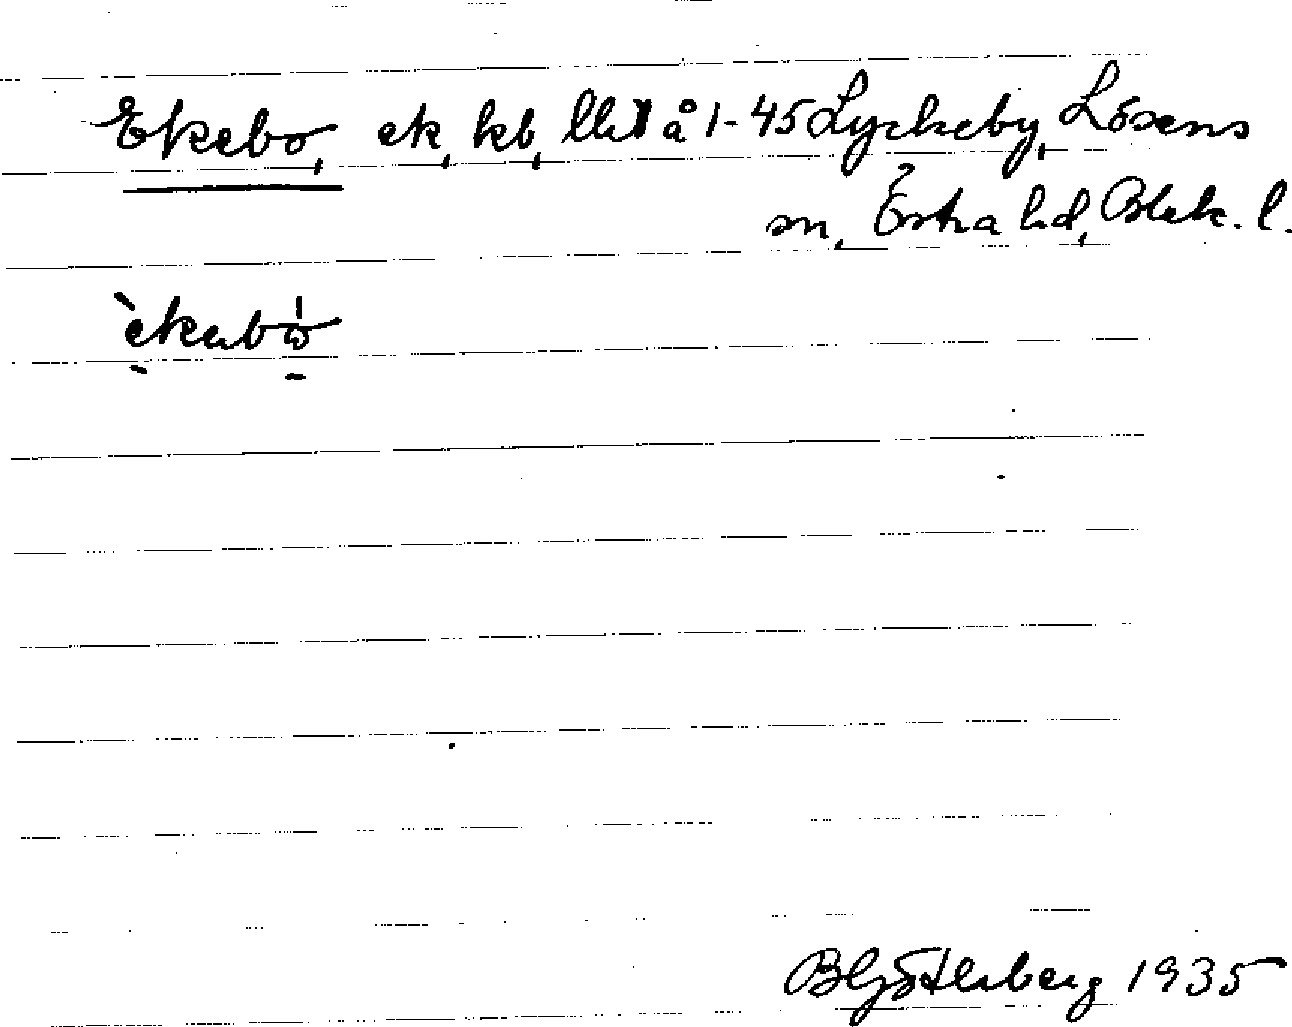 Ekebo, ek, kb, lht å 1-45 Lyckeby, Lösens
sn, Östra hd, Blek. l.
èkabo
1935